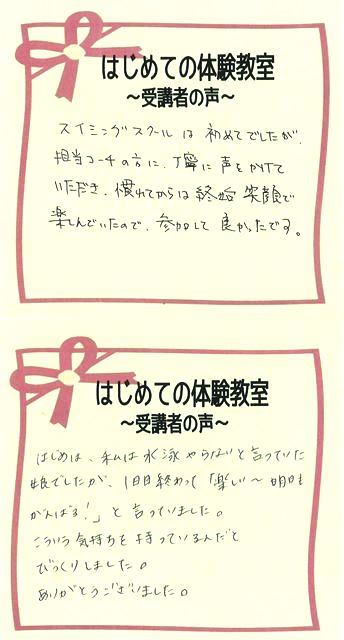 はじめての体験教室
～受講者の声～
スイミングスクールは初めてでしたが、
担当コーチの方に、丁寧に声をかけて
いただき、慣れてからは終始笑顔で
楽しんでいたので、参加して良かったです。
はじめての体験教室
～受講者の声～
はじめは、私は水泳やらないと言っていた
娘でしたが、1日目終わって「楽しい～明日も
がんばる!」と言っていました。
こういう気持ちを持っているんだと
びっくりしました。
ありがとうございました。